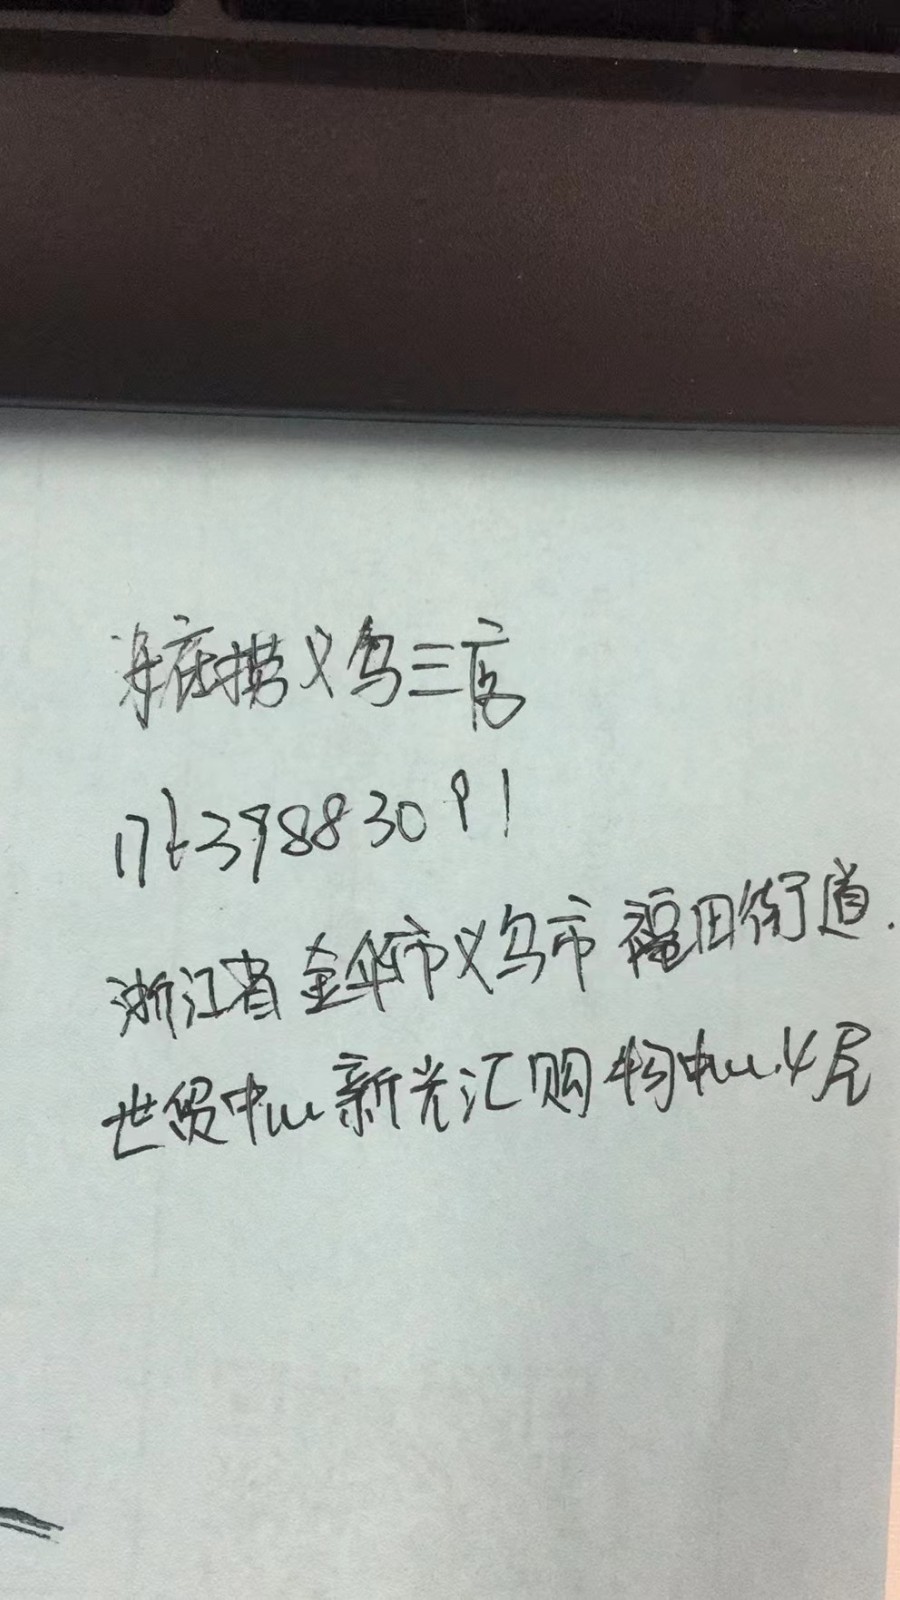 海底捞义乌三店
17639883091
浙江省金华市义乌市福田街道.
世贸中心新光汇购物中心.4层